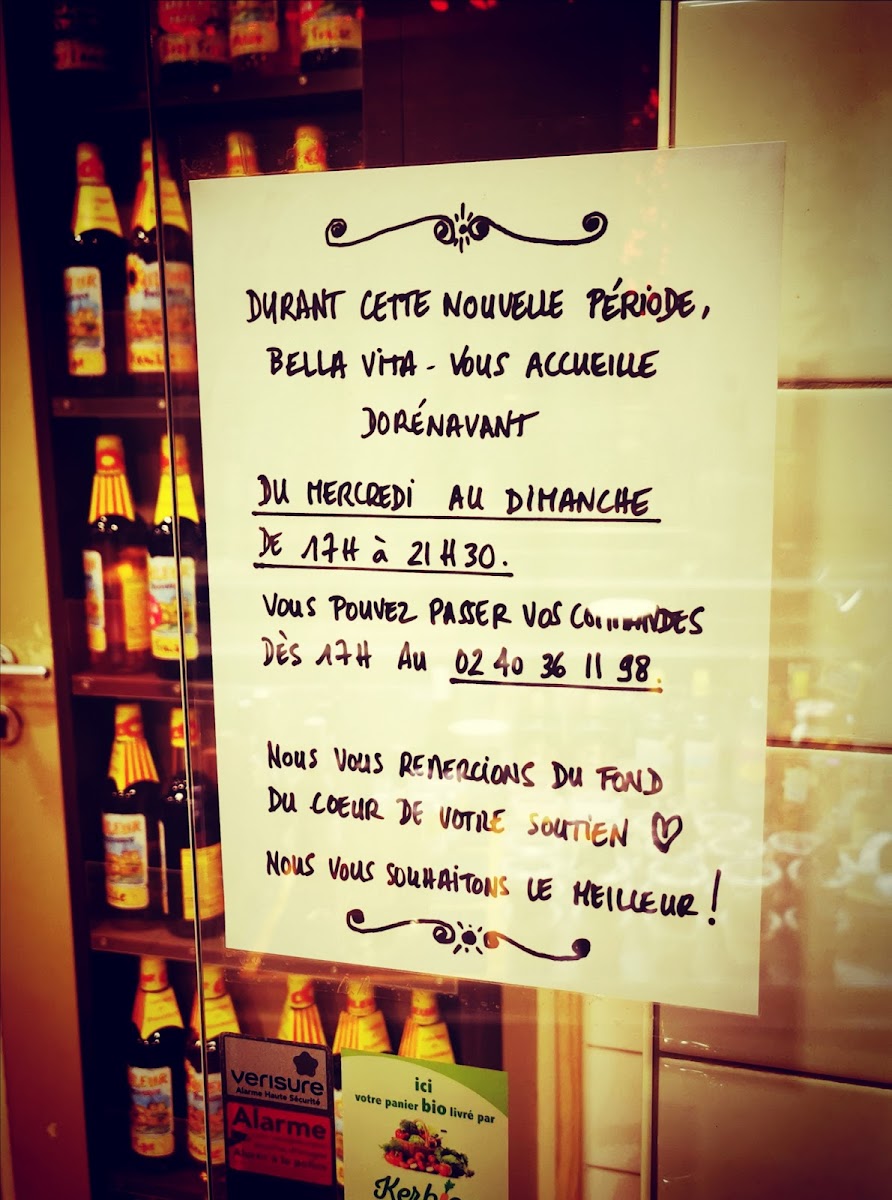 DURANT CETTE NOUVELLE PÉRIODE,
BELLA VITA - VOUS ACCUEILLE
DORÉNAVANT
DU MERCREDI AU DIMANCHE
DE 17H à 21H30.
VOUS POUVEZ PASSER VOS COMMANDES
DÈS 17H AU 02 40 36 11 98.
NOUS VOUS REMERCIONS DU FOND
DU COEUR DE VOTRE SOUTIEN
NOUS VOUS SOUHAITONS LE MEILLEUR !
verisure
Alarme Haute Sécurité
Alarme
ici
votre panier bio livré par